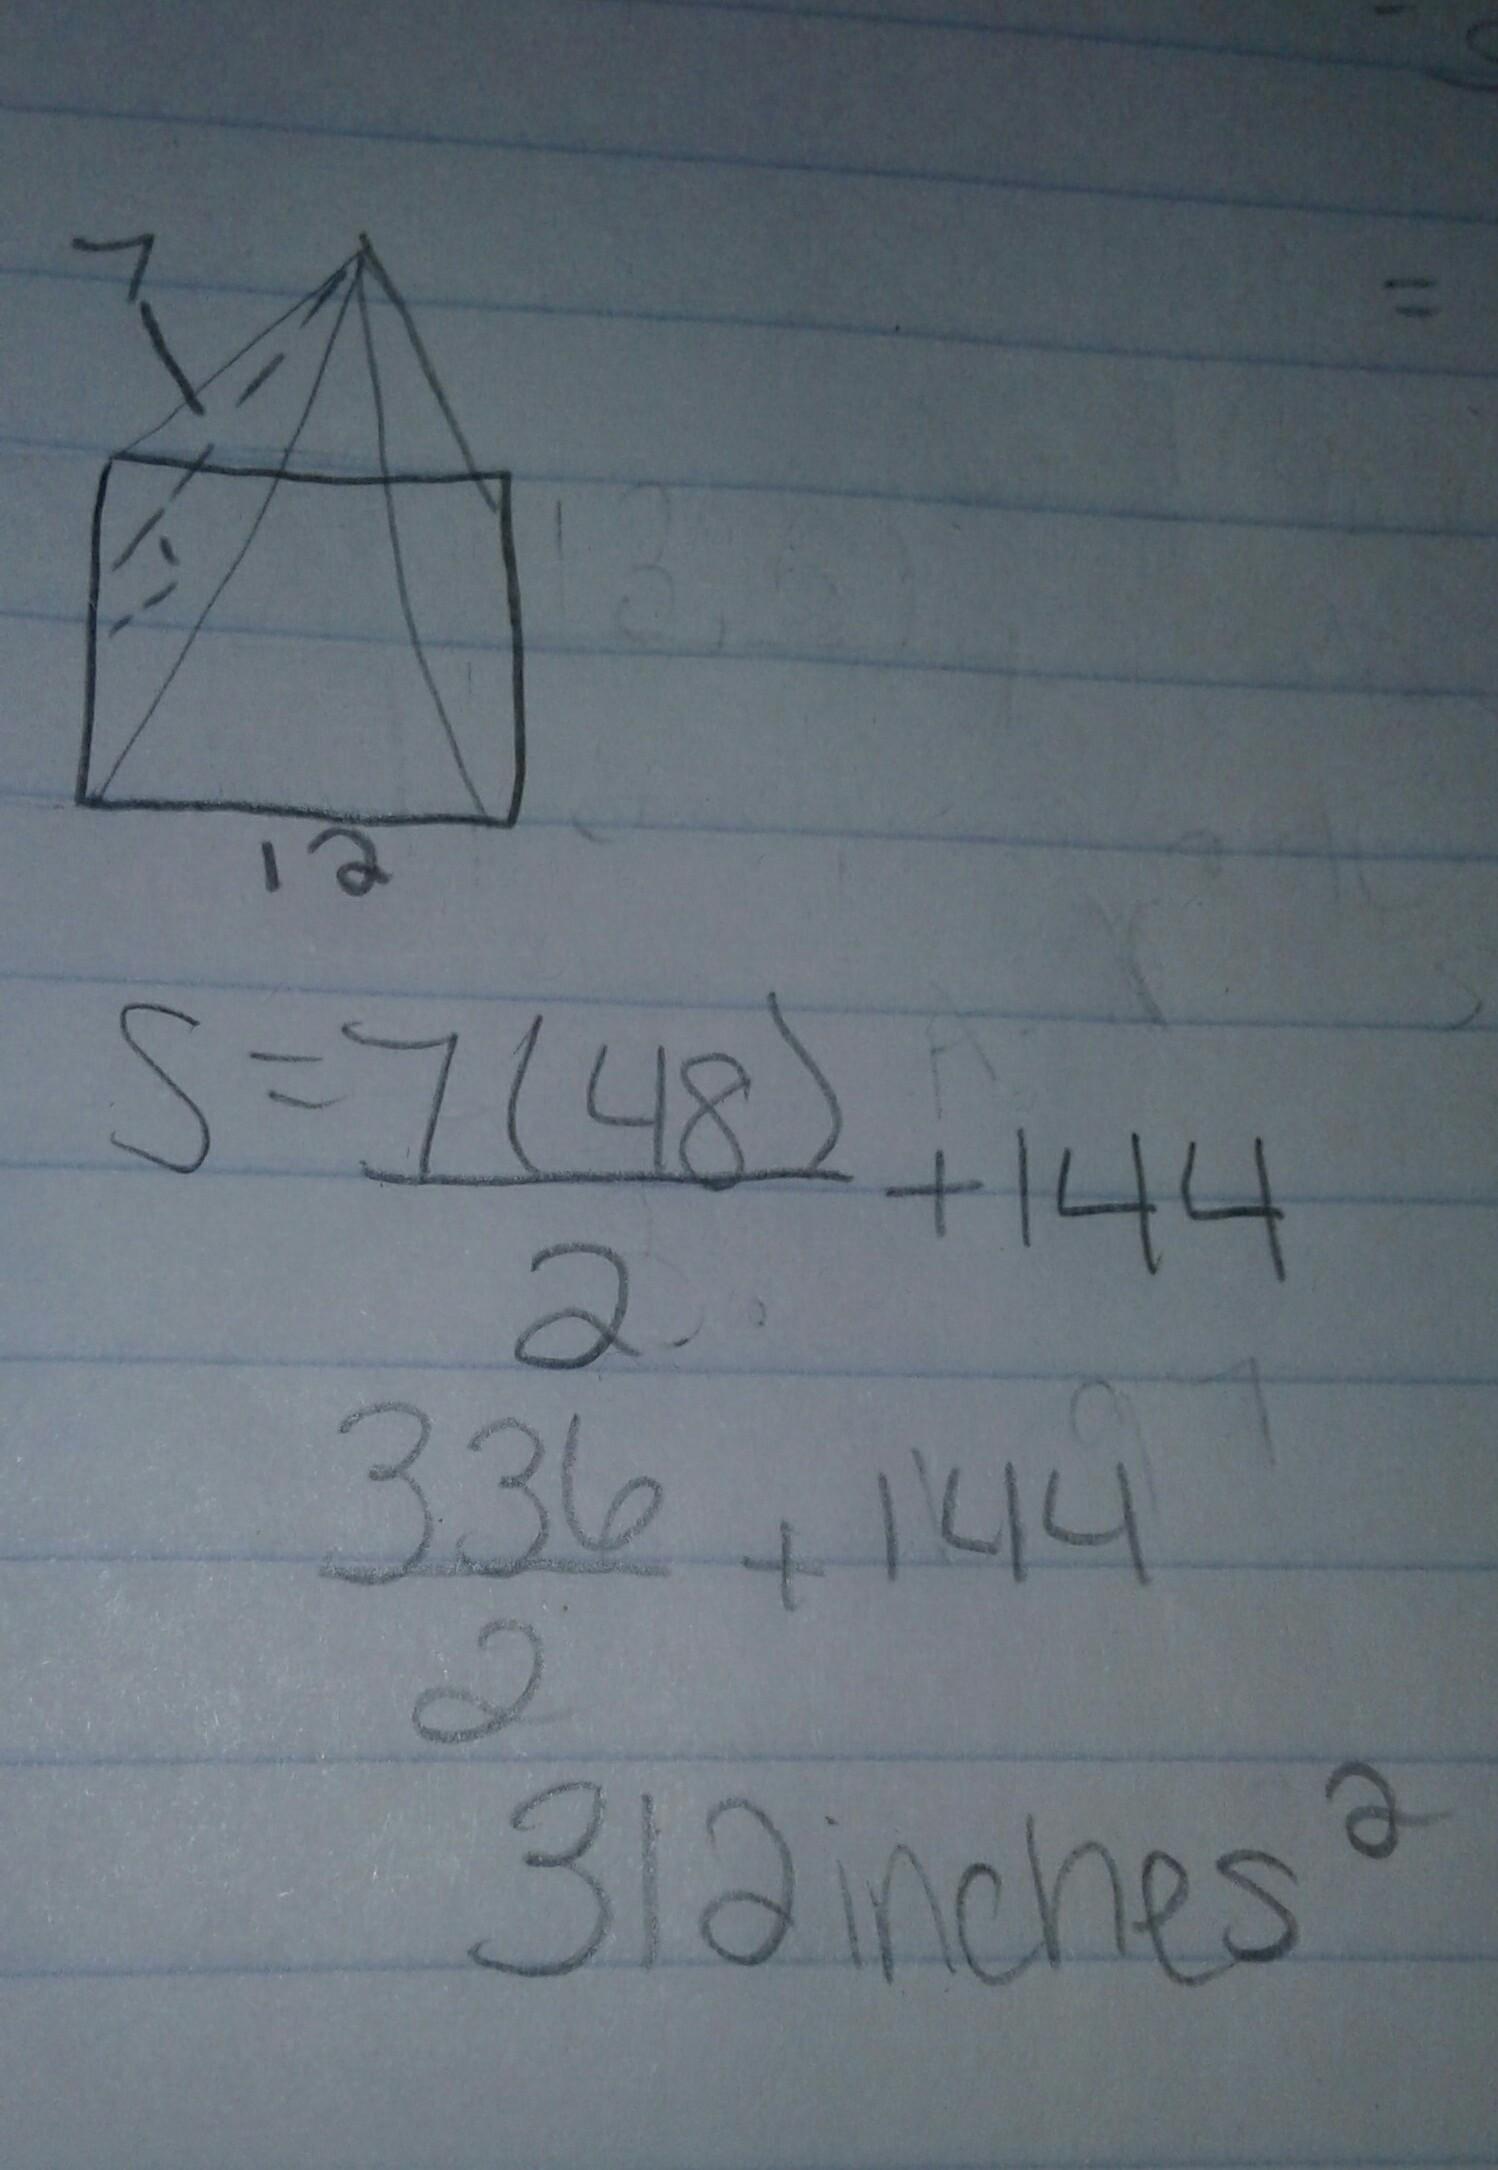 7
=
12
S = 7(48)/2 + 144
336/2 + 144
312 inches²